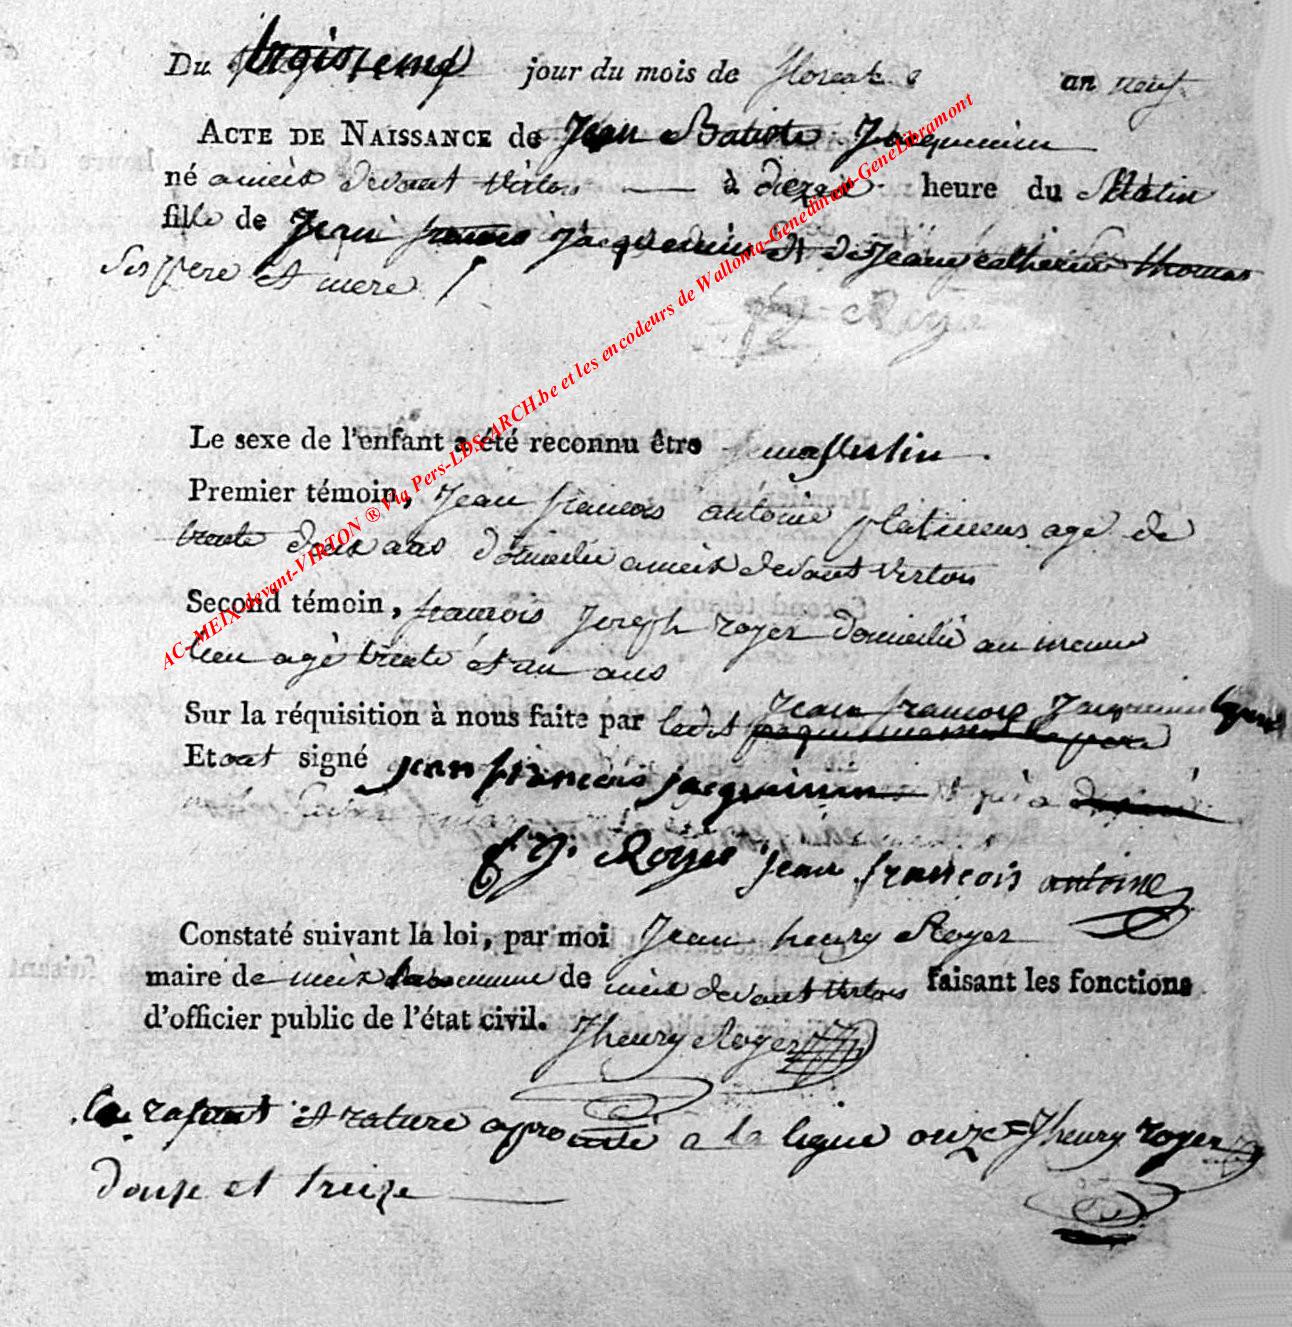 Du troisieme jour du mois de floreal an neuf
ACTE DE NAISSANCE de Jean Batiste Jacqueminin
né a meix devant virton à heure du Matin
fils de Jean francois Jacqueminin et de Jeanne catherine thomas
Ses pere et mere
Le sexe de l'enfant a été reconnu être masculin.
Premier témoin, Jean francois antoine platineur age de
trente deux ans domicilie a meix devant virton
Second témoin, francois Joseph royer domicilié au meme
lieu agé trente et un ans
Sur la réquisition à nous faite par ledit Jean francois Jacqueminin le pere
Et ont signé jean francois jacqueminin
f J. Royer jean francois antoine
Constaté suivant la loi, par moi Jean henry Royer
maire de meix commune de meix devant virton faisant les fonctions
d'officier public de l'état civil. Jhenry Royer
et rature approuvé a la ligne onze = Jhenry royer
douse et treize
AC-MEIX-devant-VIRTON ® Via Pers-LDS-ARCH.be et les encodeurs de Wallonia-Genedinant-GeneLibramont